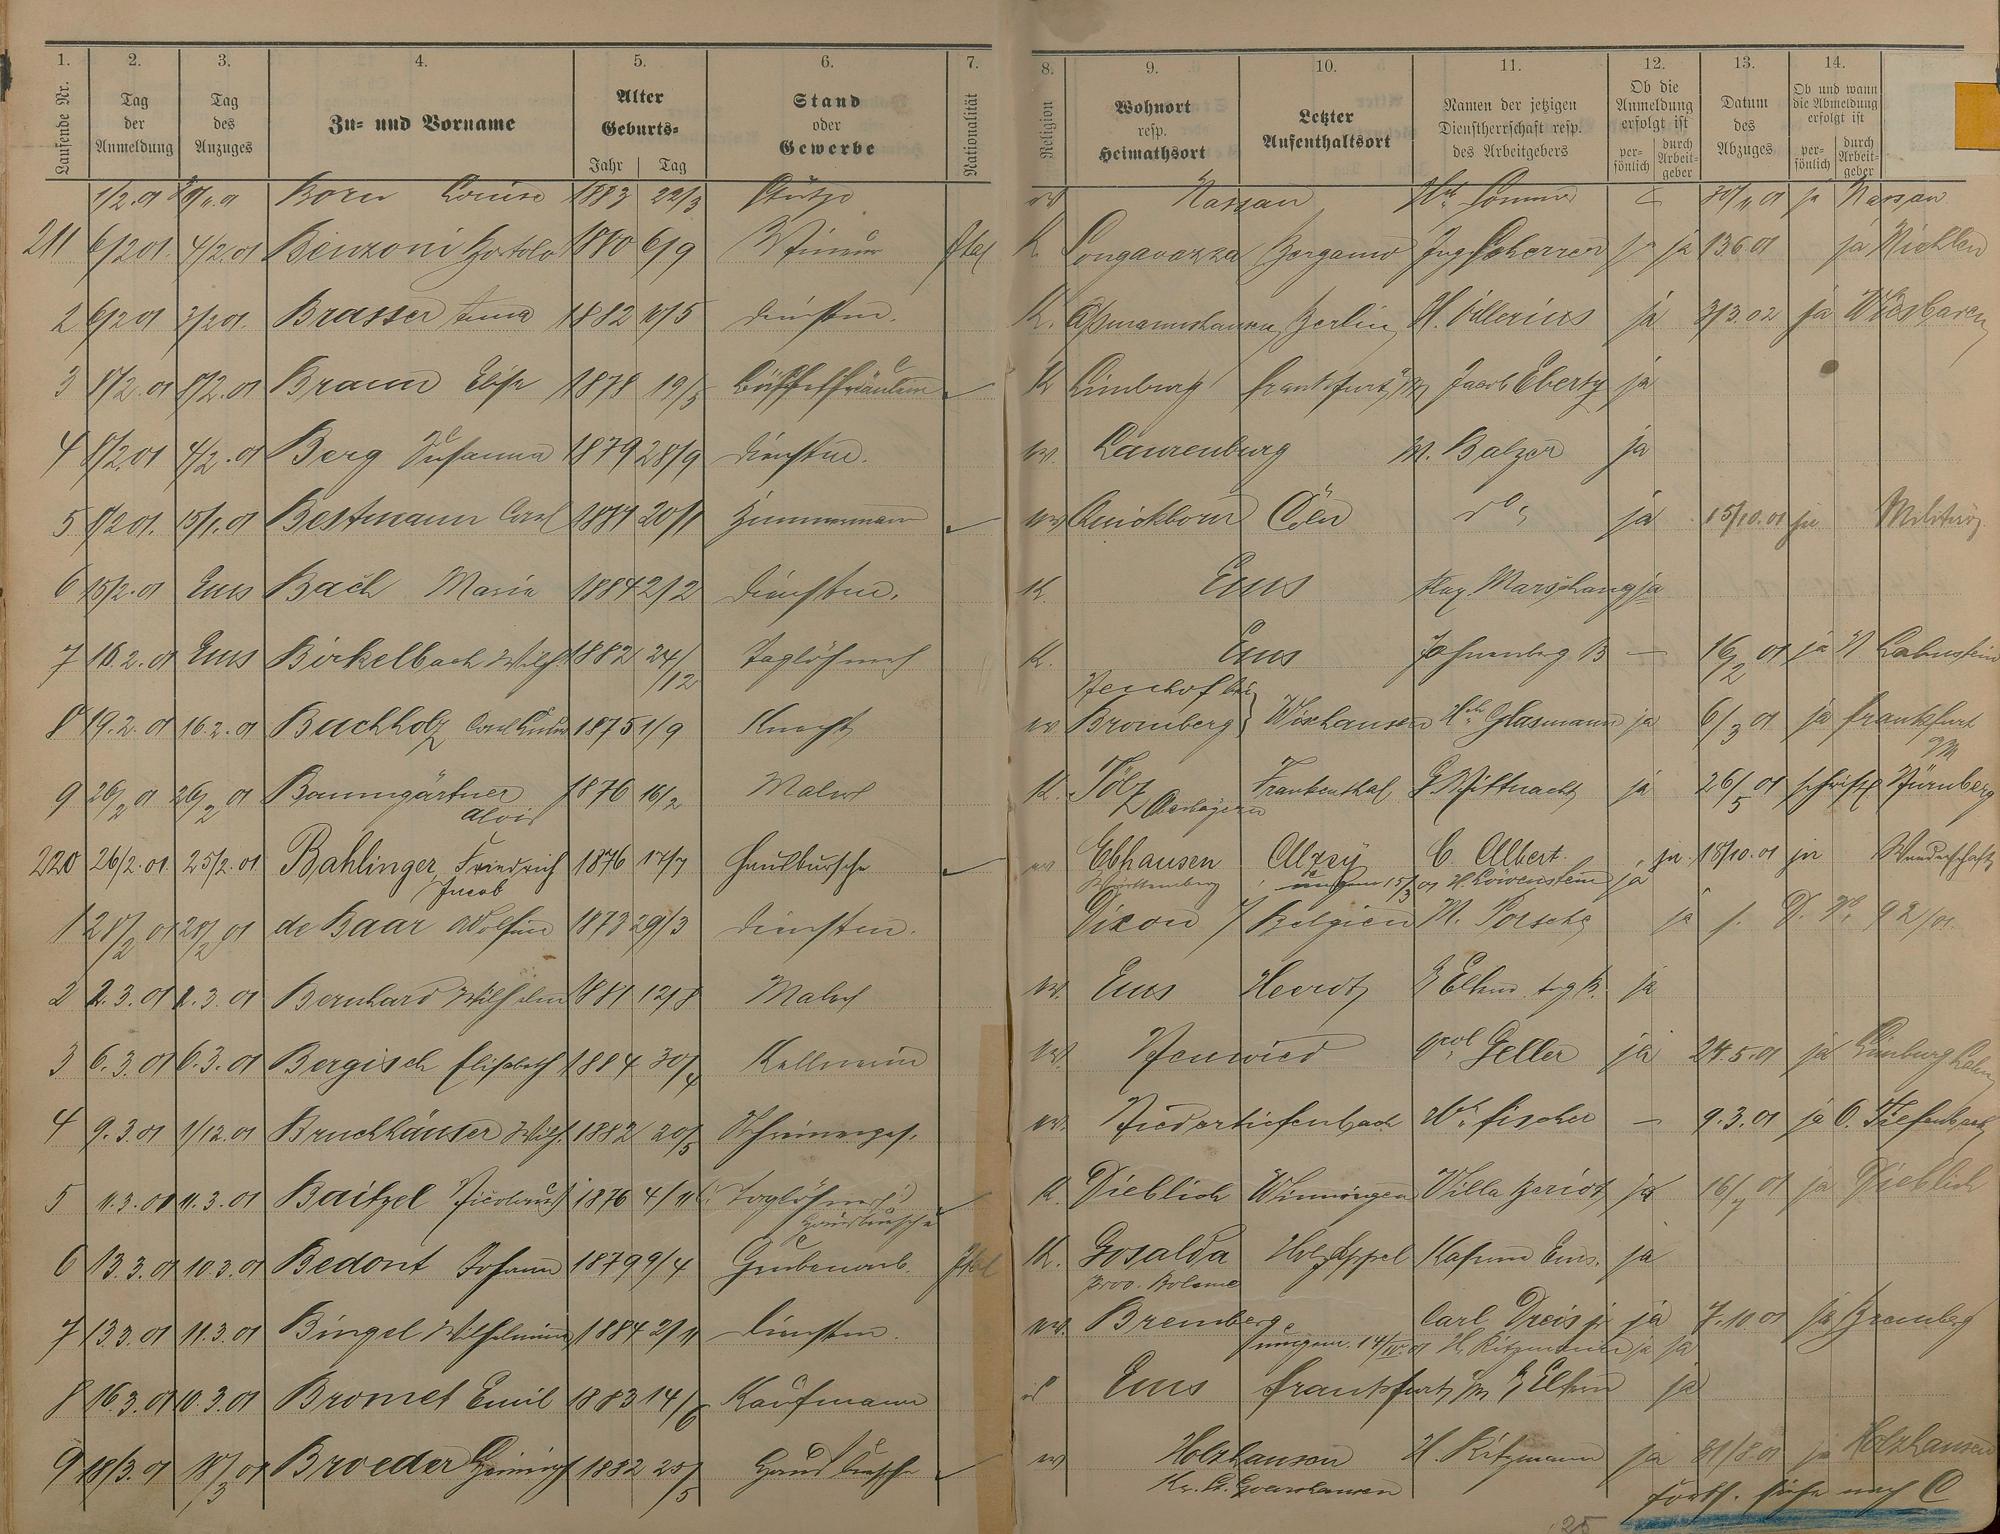 1. 2. 3. 4. 5. 6. 7. 8. 9. 10. 11. 12. 13. 14.
Laufende Nr.
Tag der Anmeldung
Tag des Anzuges
Zu- und Vorname
Alter Geburts- Jahr Tag
Stand oder Gewerbe
Nationalität
Religion
Wohnort resp. Heimathsort
Letzter Aufenthaltsort
Namen der jetzigen Dienstherrschaft resp. des Arbeitgebers
Ob die Anmeldung erfolgt ist persönlich durch Arbeitgeber
Datum des Abzuges
Ob und wann die Abmeldung erfolgt ist persönlich durch Arbeitgeber
1/2.01 Born Louise 1883 22/3 Stütze Nassau 30/11 01 ja Nassau
211 6/2 01. 4/2.01 Benzoni Bortolo 1880 6/9 Mineur Ital K. Songavazza Bergamo Ing Scherrer ja ja 13 6 01 ja Miehlen
2 6/2 01 2/2 01. Brasser Anna 1882 10/5 Dienstm. K. Aßmannshausen Berlin H. Villerius ja 3/3.02 ja Wiesbaden
3 8/2.01 8/2.01 Braun Elise 1878 19/5 Büffetfräulein K Limburg Frankfurt a/M Jacob Eberty ja
4 8/2 01 4/2.01 Berg Susanna 1879 28/9 Dienstm. ev. Laurenburg M. Balzer ja
5 8/2 01. 15/1.01 Bestmann Carl 1881 20/1 Zimmermann ev Quickborn Cöln do ja 15/10.01 ja Militär
6 15/2.01 Ems Bach Maria 1884 2/2 Dienstm. K. Ems Marschang ja
7 16.2.01 Ems Birkelbach Wilh 1882 24/12 Taglöhner K. Ems B — 16/2 01 ja N Lahnstein
8 19.2.01 16.2.01 Buchholz Carl 1875 1/9 Knecht ev Neuhof bei Bromberg Wixhausen Glasmann ja 6/3 01 ja Frankfurt a/M
9 26/2 01 26/2 01 Baumgärtner Alois 1876 16/2 Maler K. Tölz Oberbayern Frankenthal G Mittnacht ja 26/5 01 schriftl Nürnberg
220 26/2.01 25/2.01 Bahlinger, Friedrich Jacob 1876 17/7 Hausbursche ev Ebhausen Württemberg Alzey C. Albert ja. 18/10.01 ja Wanderschaft
15/3 01 H. Löwenstein ja
1 28/2 01 28/2 01 de Baar 1873 29/3 Dienstm. Dixon / Belgien M. Porsche ja D. No 92/01.
2 2.3.01 2.3.01 Bernhard Wilhelm 1881 12/8 Maler ev. Ems Heerdt ja
3 6.3.01 6.3.01 Bergisch Elisabeth 1884 30/4 Kellnerin ev. Neuwied Geller ja 24.5.01 ja Limburg Lahn
4 9.3.01 1/12.01 Bruchhäuser Wilh 1882 20/5 Schreinerges. ev. Niedertiefenbach Fischer — 9.3.01 ja O. Tiefenbach
5 11.3.01 11.3.01 Baitzel Nicolaus 1876 4/11 (Taglöhner) Hausbursche K. Dieblich Winningen Villa Beriot ja 16/7 01 ja Dieblich
6 13.3.01 10 3.01 Bedont Johann 1879 9/4 Grubenarb. Ital K. Gosalda Prov. Holzappel Ems. ja
7 13.3.01 11.3.01 Bingel Wilhelmine 1884 2/11 Dienstm. ev. Bremberg Carl Dreis jr ja 7.10 01 ja Bremberg
umgem. 14/IV.01 H. Ritzmann ja ja
8 16.3.01 10.3.01 Bromet Emil 1883 14/6 Kaufmann Ems Frankfurt a/M ja
9 18/3.01 18/3 01 Broeder Heinrich 1882 25/5 Hausbursche ev Holzhausen Kr. St. Goarshausen H. Ritzmann ja 31/8.01 ja Holzhausen
Forts. siehe nach C
25